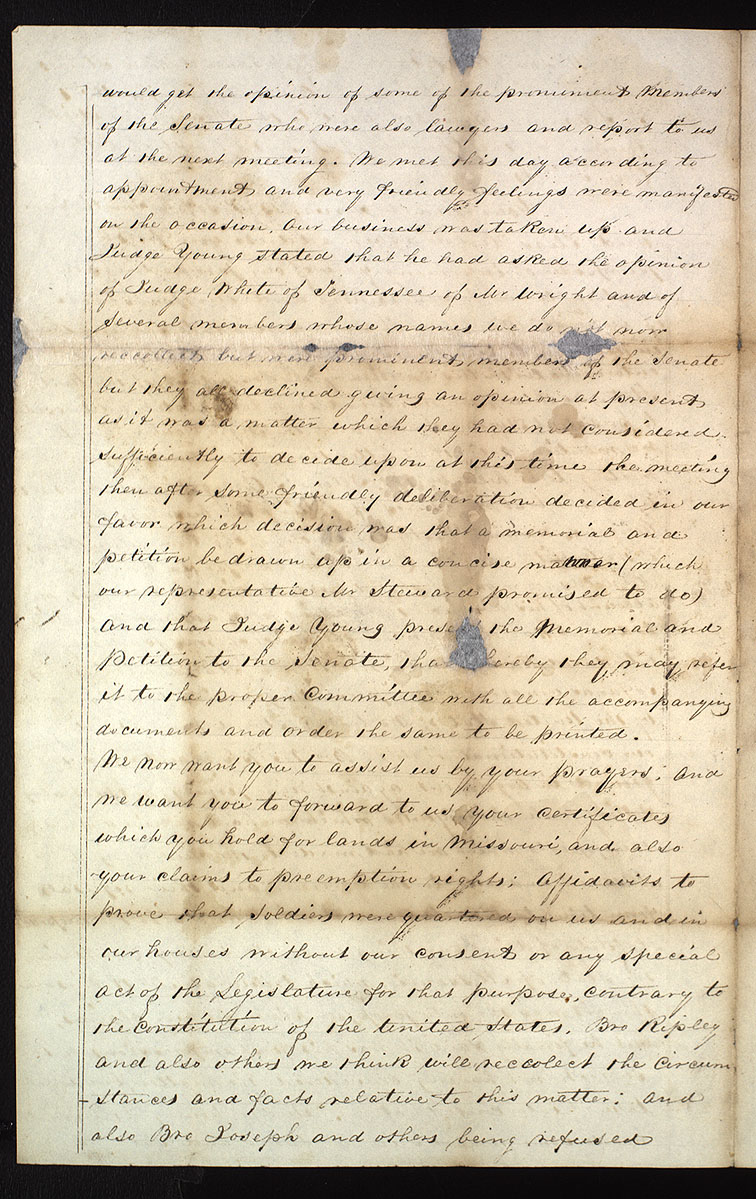 would get the opinion of some of the prominent Members
of the Senate who were also lawyers and report to us
at the next meeting. We met this day according to
appointment and very friendly feelings were manifested
on the occasion. Our business was taken up and
Judge Young stated that he had asked the opinion
of Judge White of Tennessee of Mr Wright and of
several members whose names we do not now
reccollect but were prominent members of the Senate
but they all declined giving an opinion at present
as it was a matter which they had not considered
sufficiently to decide upon at this time the meeting
then after some friendly deliberation decided in our
favor which decision was that a memorial and
petition be drawn up in a concise manner (which
our representative Mr Steward promised to do)
and that Judge Young present the Memorial and
Petition to the Senate, that thereby they may refer
it to the proper Committee with all the accompanying
documents and order the same to be printed.
We now want you to assist us by your prayers; and
we want you to forward to us your certificates
which you hold for lands in Missouri, and also
your claims to preemption rights; affidavits to
prove that soldiers were quartered on us and in
our houses without our consent or any special
act of the Legislature for that purpose, contrary to
the constitution of the United States. Bro Ripley
and also others we think will reccolect the circum
stances and facts relative to this matter; and
also Bro Joseph and others being refused